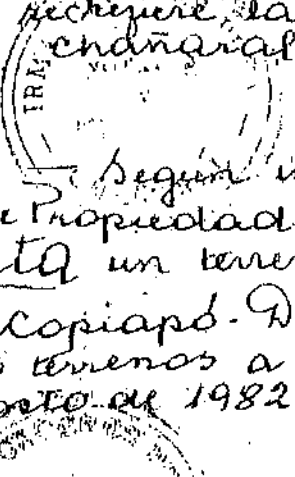 la
chañaral
IRA
Según i
Propiedad
ta un terre
Copiapó. D
terrenos a
osto de 1982